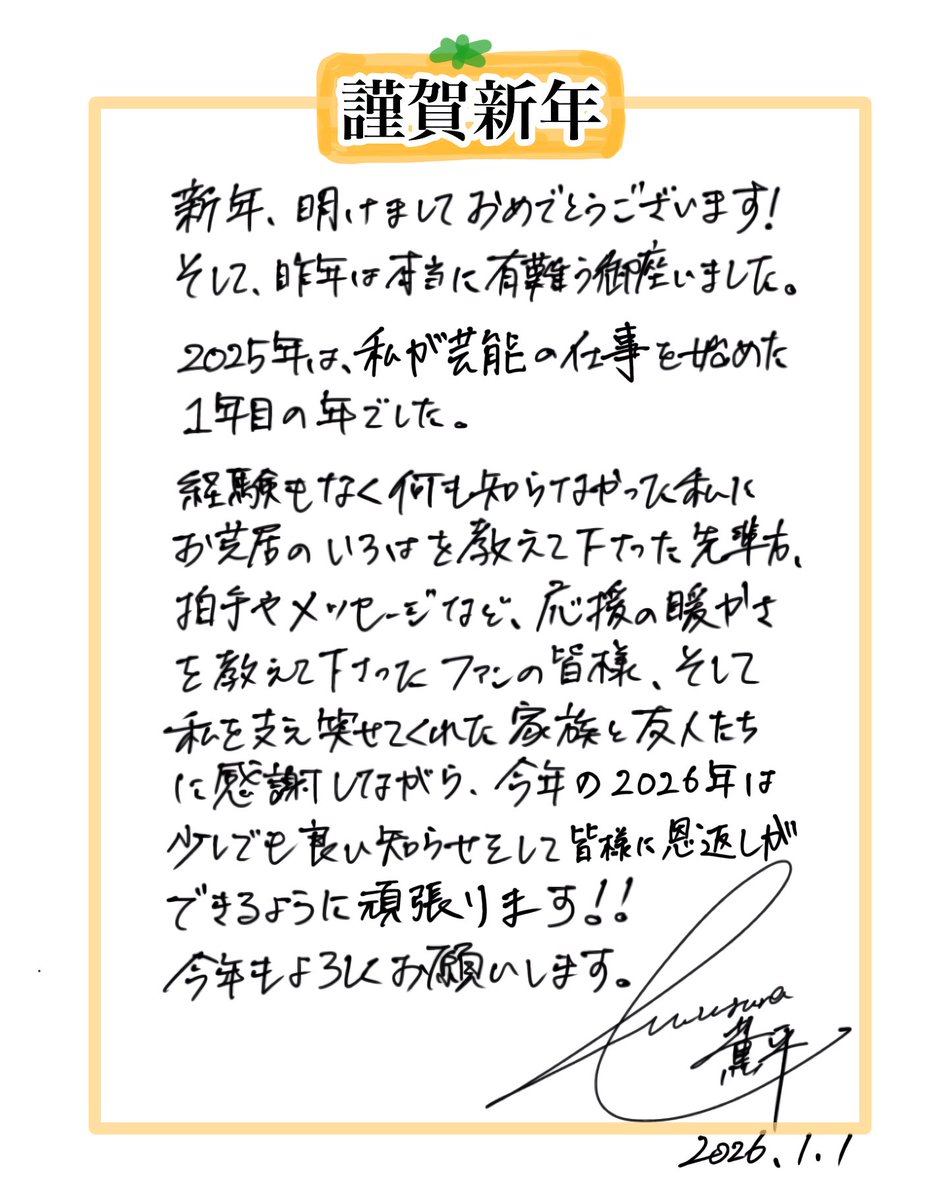 謹賀新年
新年、明けましておめでとうございます!
そして、昨年は本当に有難う御座いました。
2025年は、私が芸能の仕事を始めた
1年目の年でした。
経験もなく何も知らなかった私に
お芝居のいろはを教えて下さった先輩方、
拍手やメッセージなど、応援の暖かさ
を教えて下さったファンの皆様、そして
私を支え笑せてくれた家族と友人たち
に感謝しながら、今年の2026年は
少しでも良い知らせそして皆様に恩返しが
できるように頑張ります!!
今年もよろしくお願いします。
薫平
2026.1.1